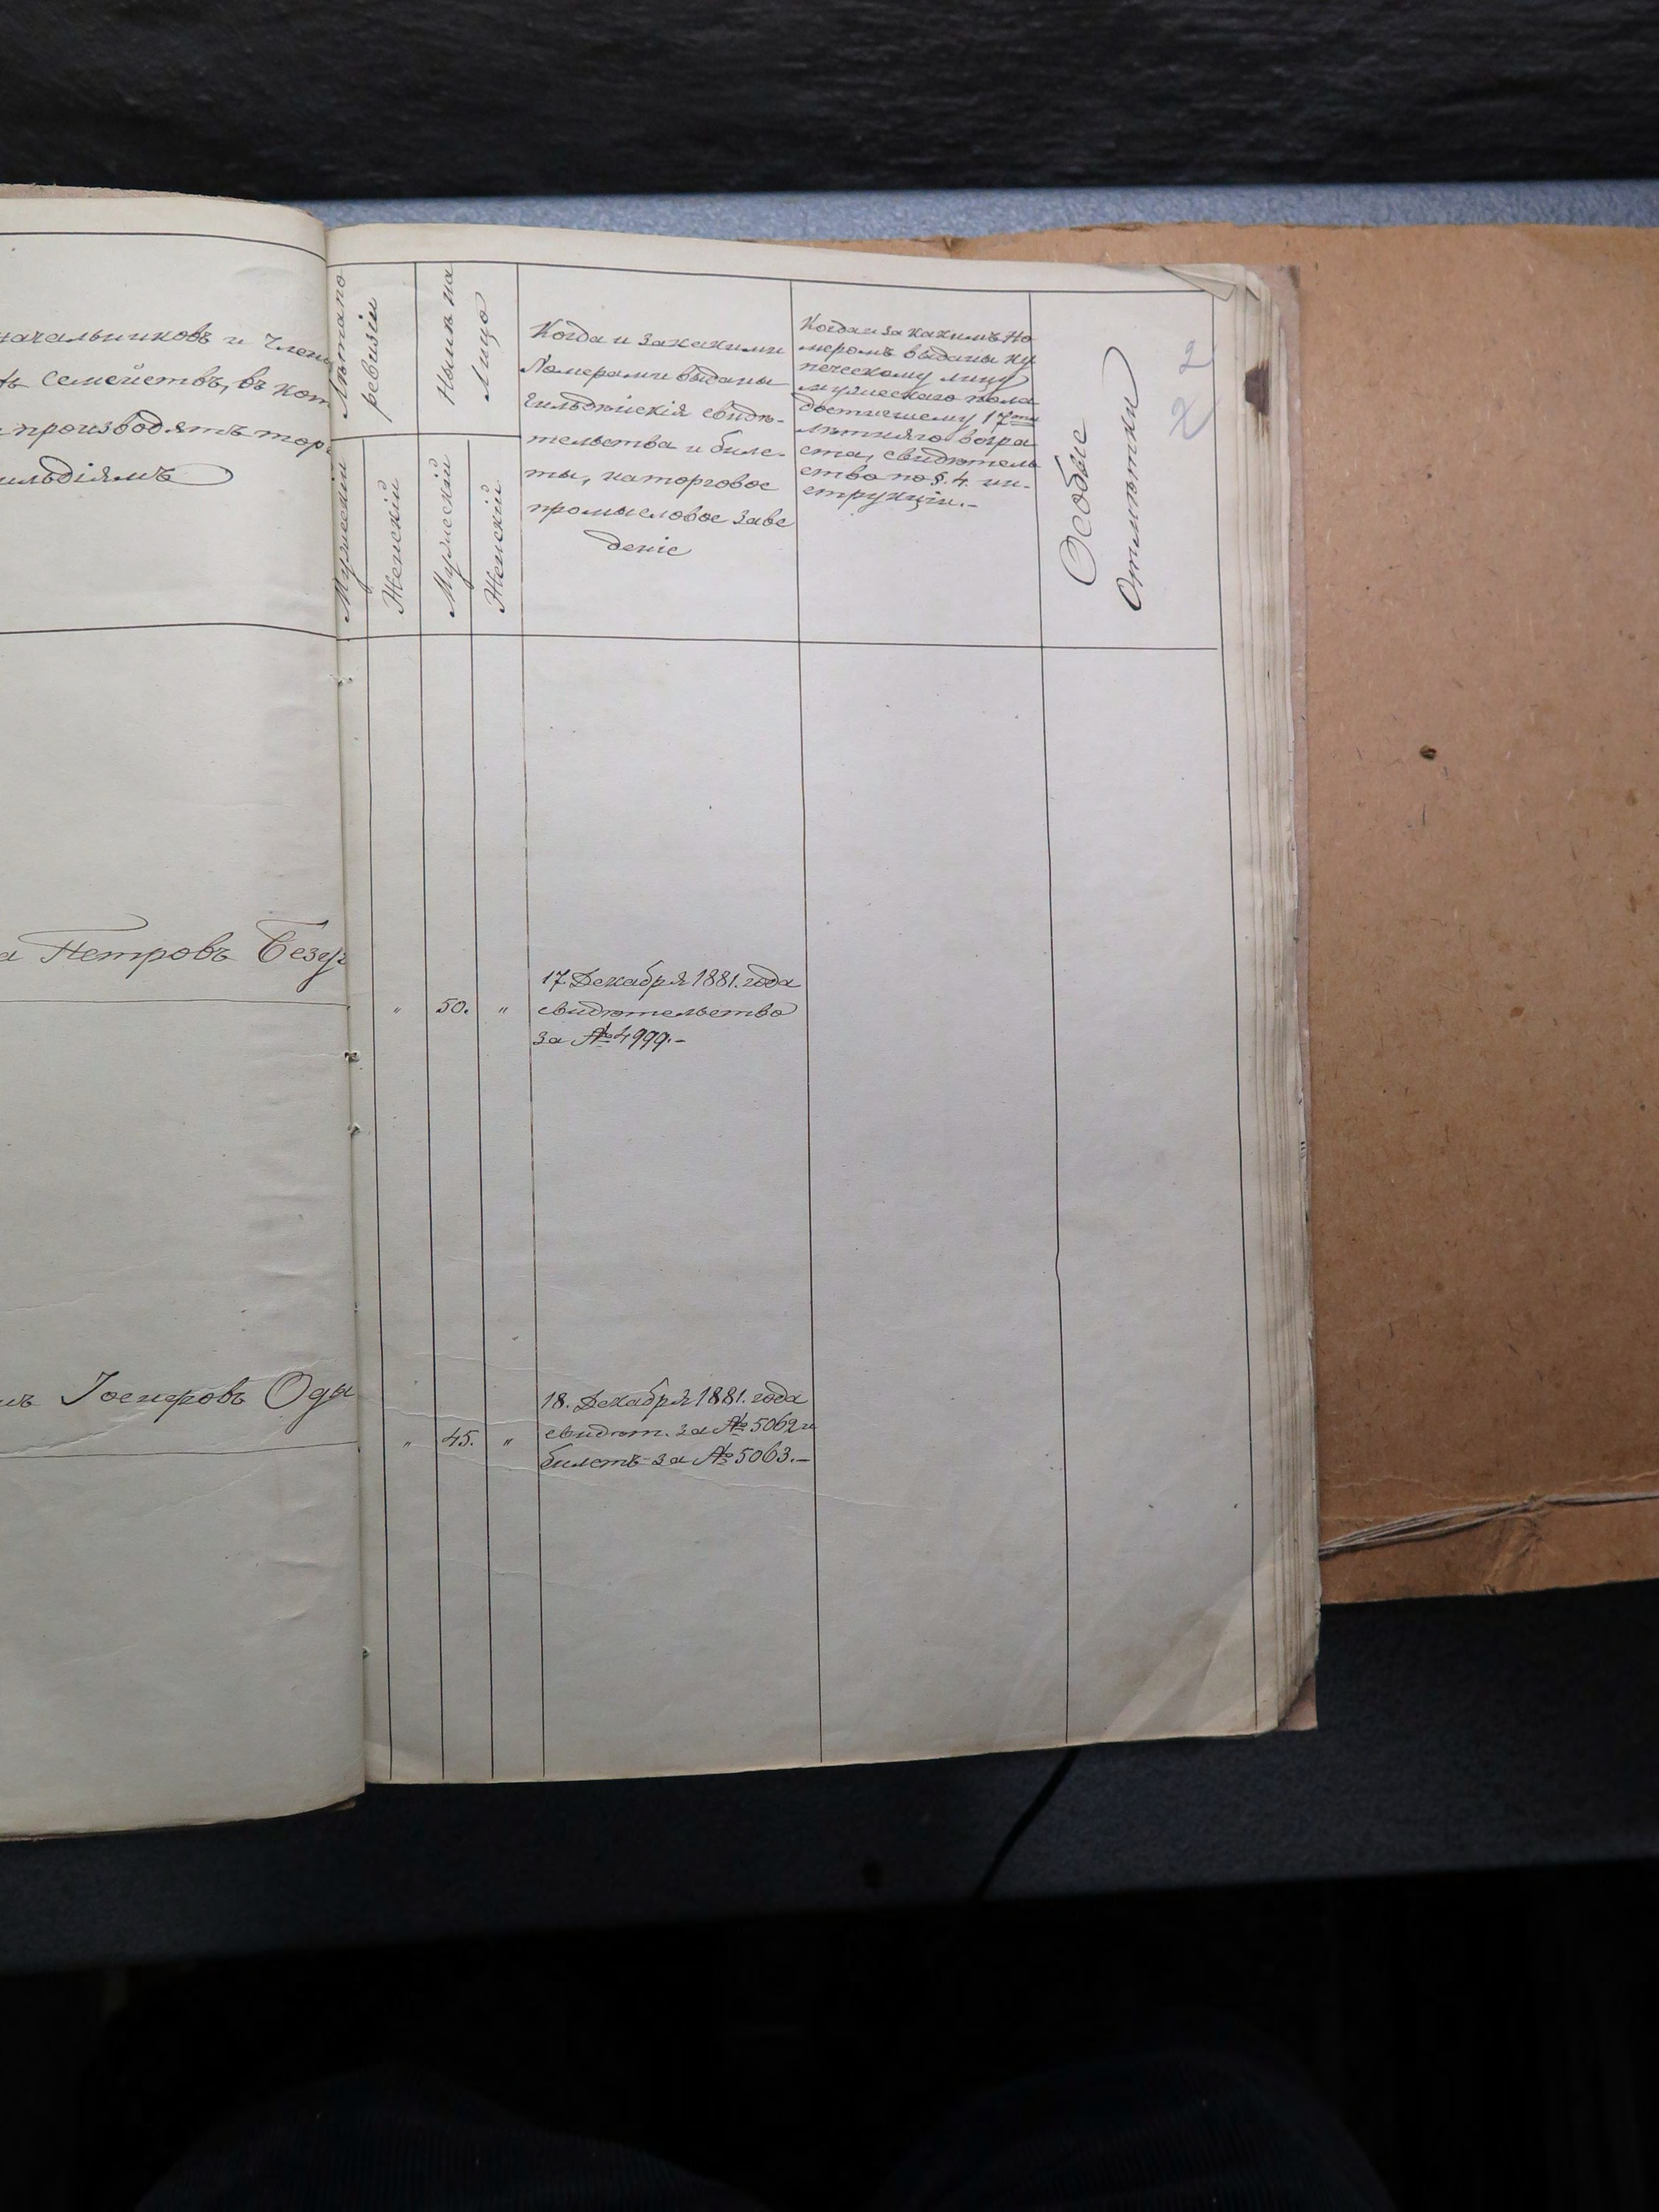 начальниковъ и Члено
семействъ, въ кот
производятъ торг
ильдіямъ
Лѣта по
ревизіи
Нынѣ на
Лицо
Мужескій
Женскій
Мужескій
Женскій
Когда и за какими
Номерами выданы
Гильдейскія свидѣ-
тельства и биле-
ты, на торговое
промысловое заве
деніе
Когда и за какимъ Но
меромъ выданы ку
печескому лицу
мужескаго пола
достигшему 17ти
лѣтняго возра
ста, свидѣтель
ство по §. 4. ин-
струкціи.-
Особые
Отмѣтки
2
2
а Петровъ Безу
" 50. "
17 Декабря 1881. года
свидѣтельство
за № 4999.-
Іосифовъ Оди
" 45. "
18. Декабря 1881. года
свидѣт. за № 5062 и
билетъ за № 5063.-